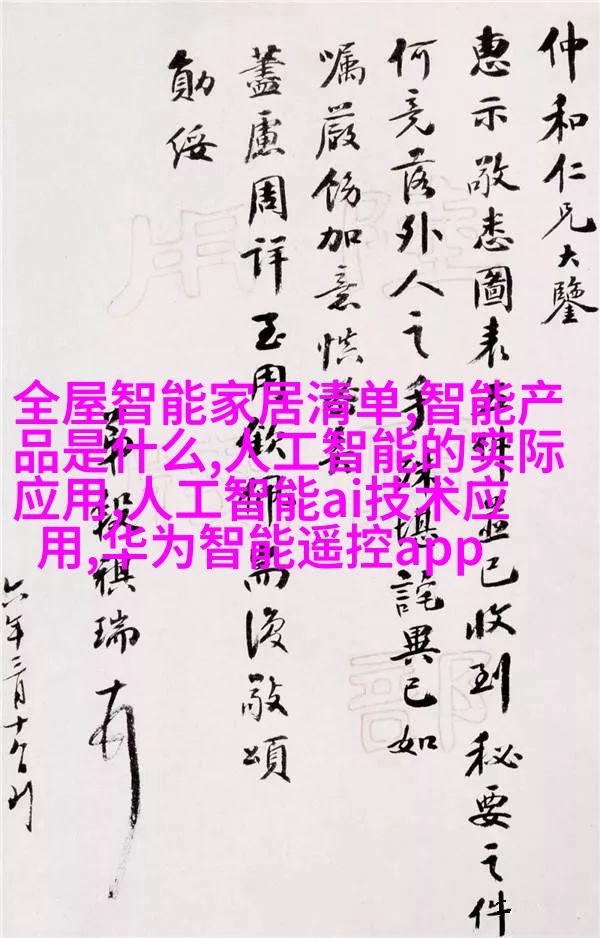 仲和仁兄大鑒
惠示敬悉圖表件並已收到秘要之件
何竟落外人之手殊堪詫異已如
囑嚴飭加意慎
藎慮周詳至用欽佩肅復敬頌
勛綏
段祺瑞
六年三月十
全屋智能家居清单,智能产
品是什么,人工智能的实际
应用,人工智能ai技术应
用,华为智能遥控app